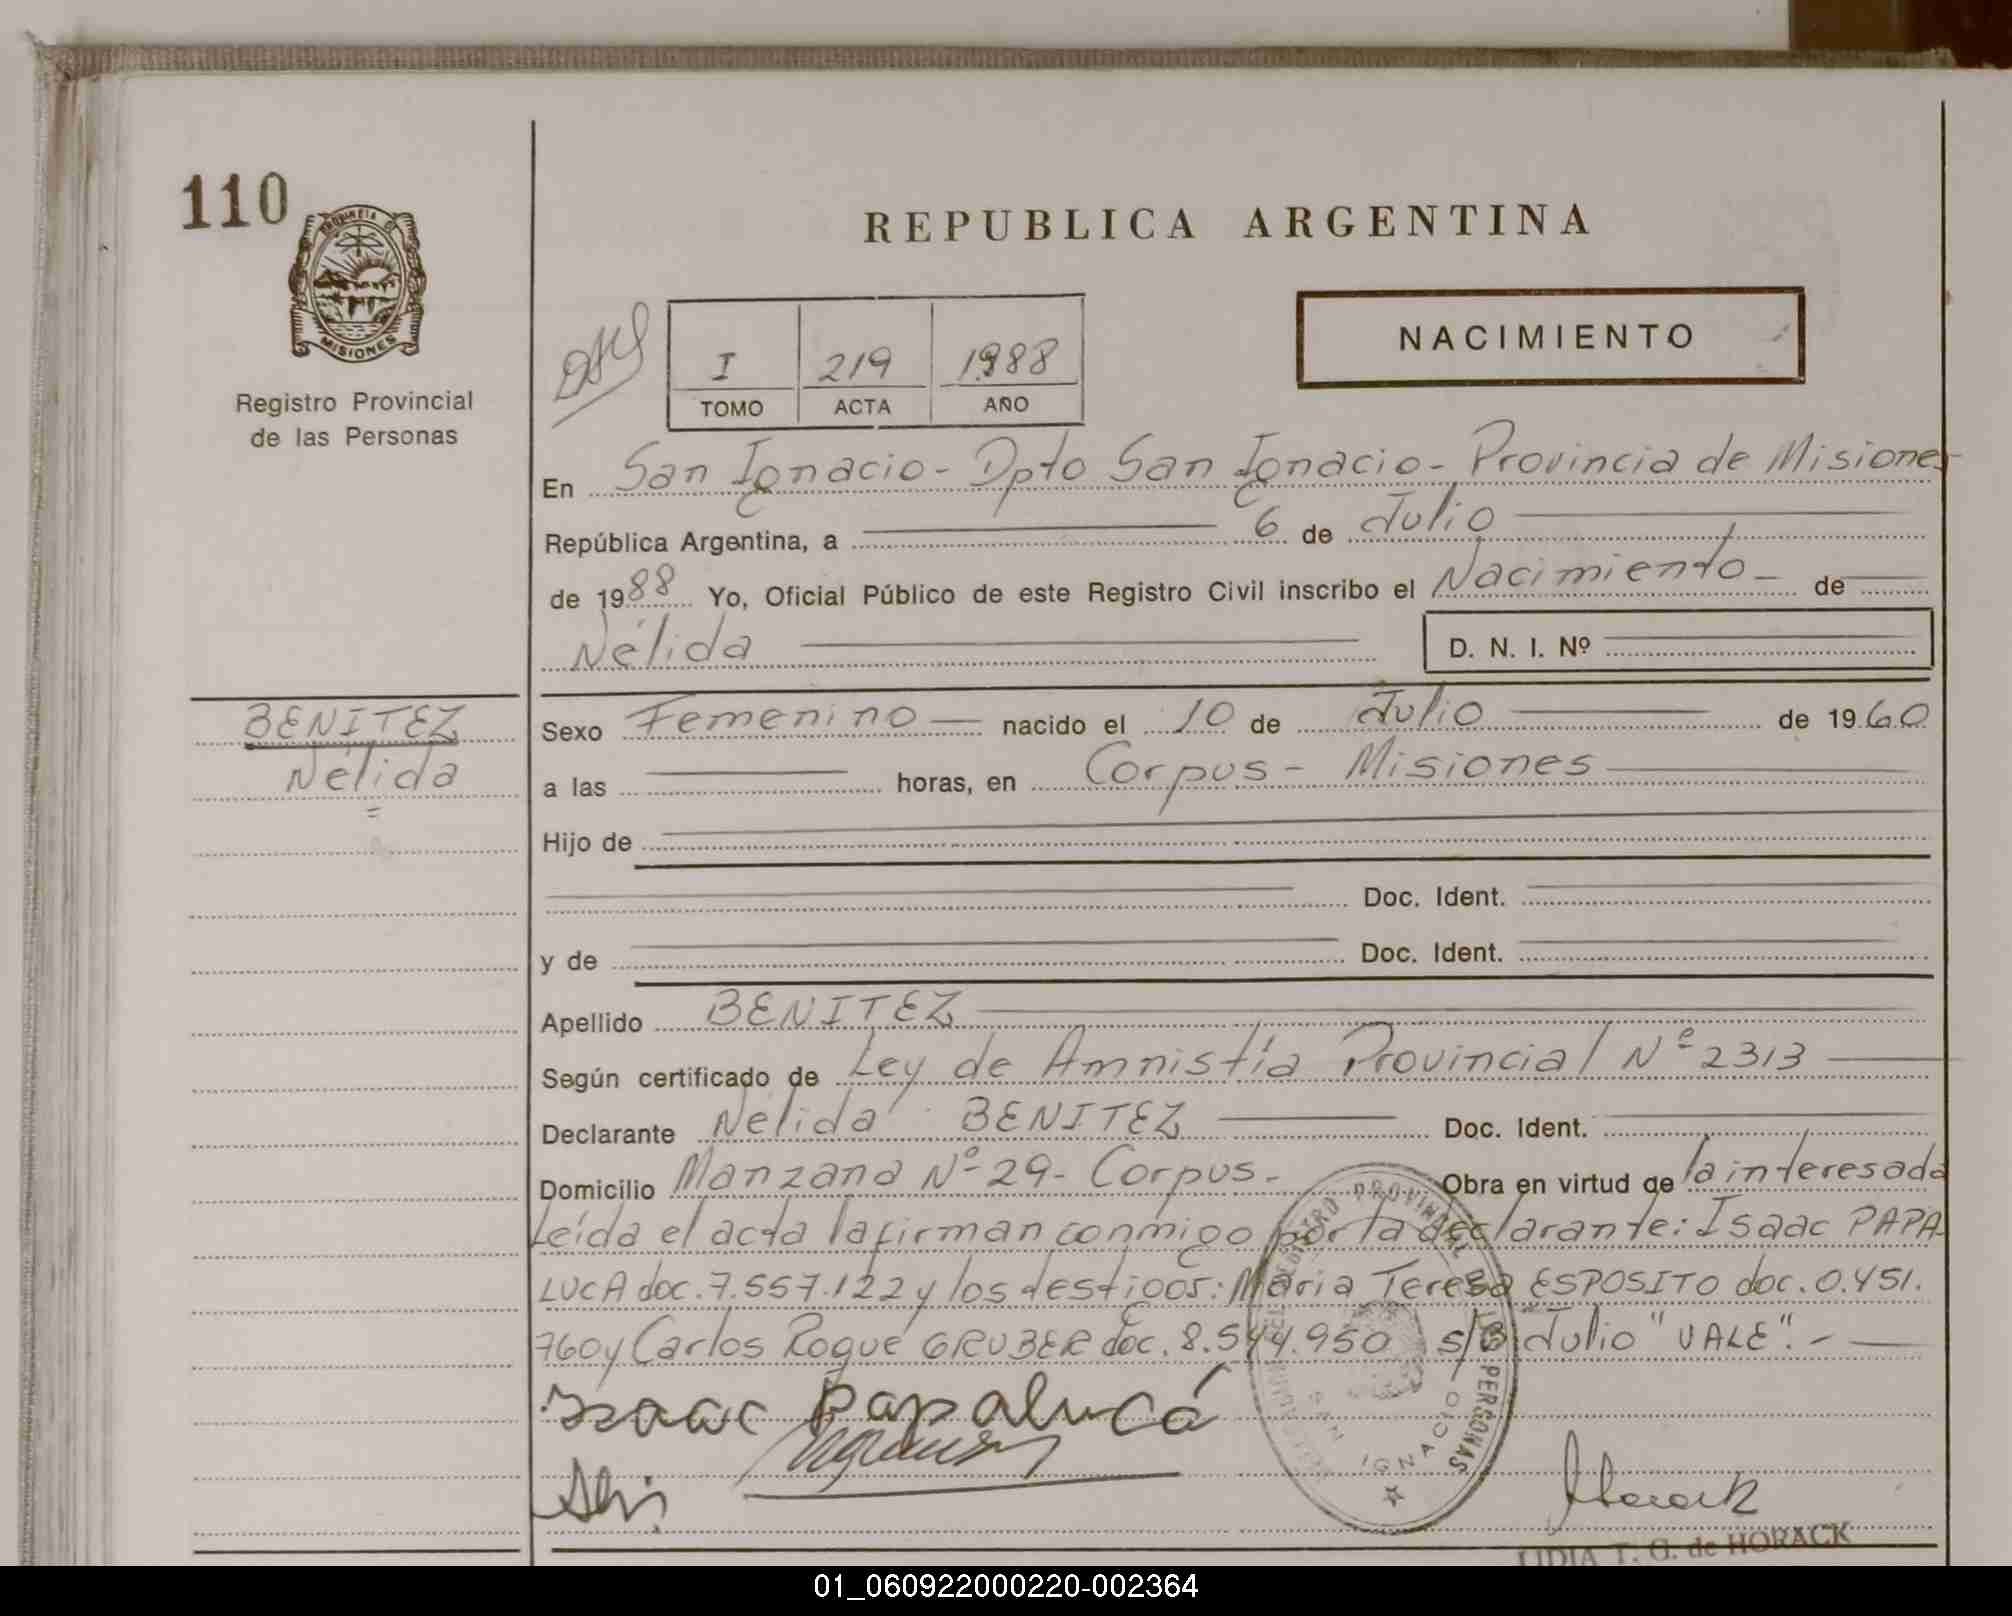 110
PROVINCIA
MISIONES
Registro Provincial
de las Personas
REPUBLICA ARGENTINA
I 219 1988
TOMO ACTA AÑO
NACIMIENTO
En San Ignacio - Dpto San Ignacio - Provincia de Misiones
República Argentina, a 6 de Julio
de 1988 Yo, Oficial Público de este Registro Civil inscribo el Nacimiento - de
Nélida D. N. I. Nº
BENITEZ
Nélida
Sexo Femenino nacido el 10 de Julio de 1960
a las horas, en Corpus - Misiones
Hijo de
Doc. Ident.
y de Doc. Ident.
Apellido BENITEZ
Según certificado de Ley de Amnistía Provincial Nº 2313
Declarante Nélida BENITEZ Doc. Ident.
Domicilio Manzana Nº 29 - Corpus - Obra en virtud de la interesada
Leída el acta la firman conmigo por la declarante: Isaac PAPA
LUCA doc. 7.557.122 y los testigos: María Teresa ESPOSITO doc. 0.451.
760 y Carlos Roque GRUBER doc. 8.544.950 s/B: Julio "VALE". -
Isaac Papalucá
REGISTRO PROVINCIAL DE LAS PERSONAS
SAN IGNACIO
Horack
LIDIA T. G. de HORACK
01_060922000220-002364